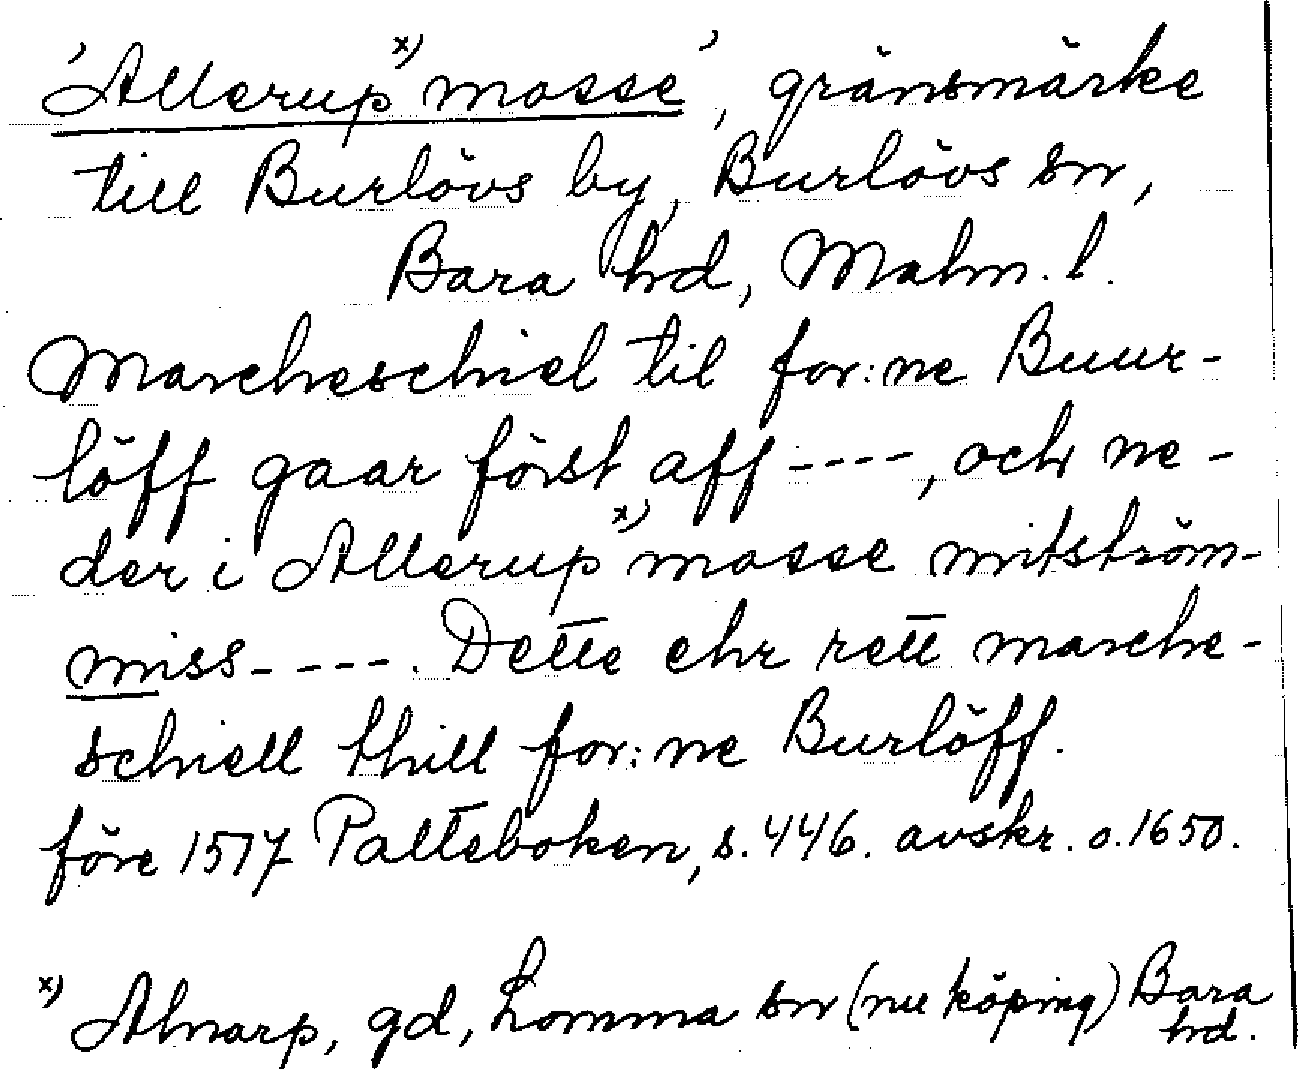 'Allerup x) mosse', gränsmärke
till Burlövs by, Burlövs sn,
Bara hd, Malm. l.
Marcheschiel til for:ne Buur-
löff gaar först aff ----, och ne-
der i Allerup x) mosse mitström-
miss----. Dette ehr rett marche-
schiell thill for:ne Burlöff.
före 1517 Palteboken, s. 446. avskr. o. 1650.
x) Alnarp, gd, Lomma sn (nu köping) Bara
hd.